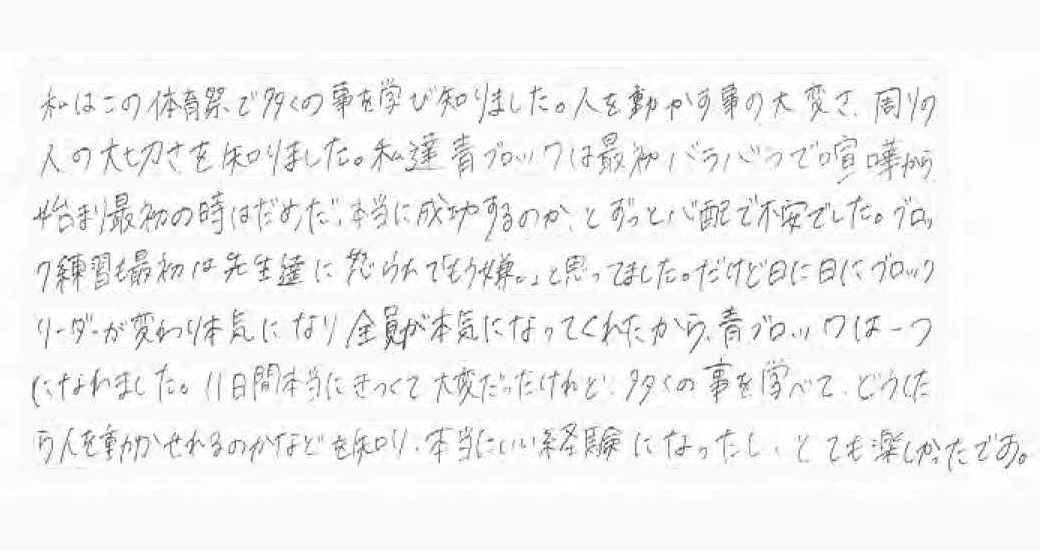 私はこの体育祭で多くの事を学び知りました。人を動かす事の大変さ、周りの
人の大切さを知りました。私達青ブロックは最初バラバラで喧嘩から
始まり最初の時はだめだ、本当に成功するのか、とずっと心配で不安でした。ブロッ
ク練習も最初は先生達に怒られて「もう嫌。」と思ってました。だけど日に日にブロック
リーダーが変わり本気になり全員が本気になってくれたから、青ブロックは一つ
になれました。11日間本当にきつくて大変だったけれど、多くの事を学べて、どうした
ら人を動かせれるのかなどを知り、本当にいい経験になったし、とても楽しかったです。